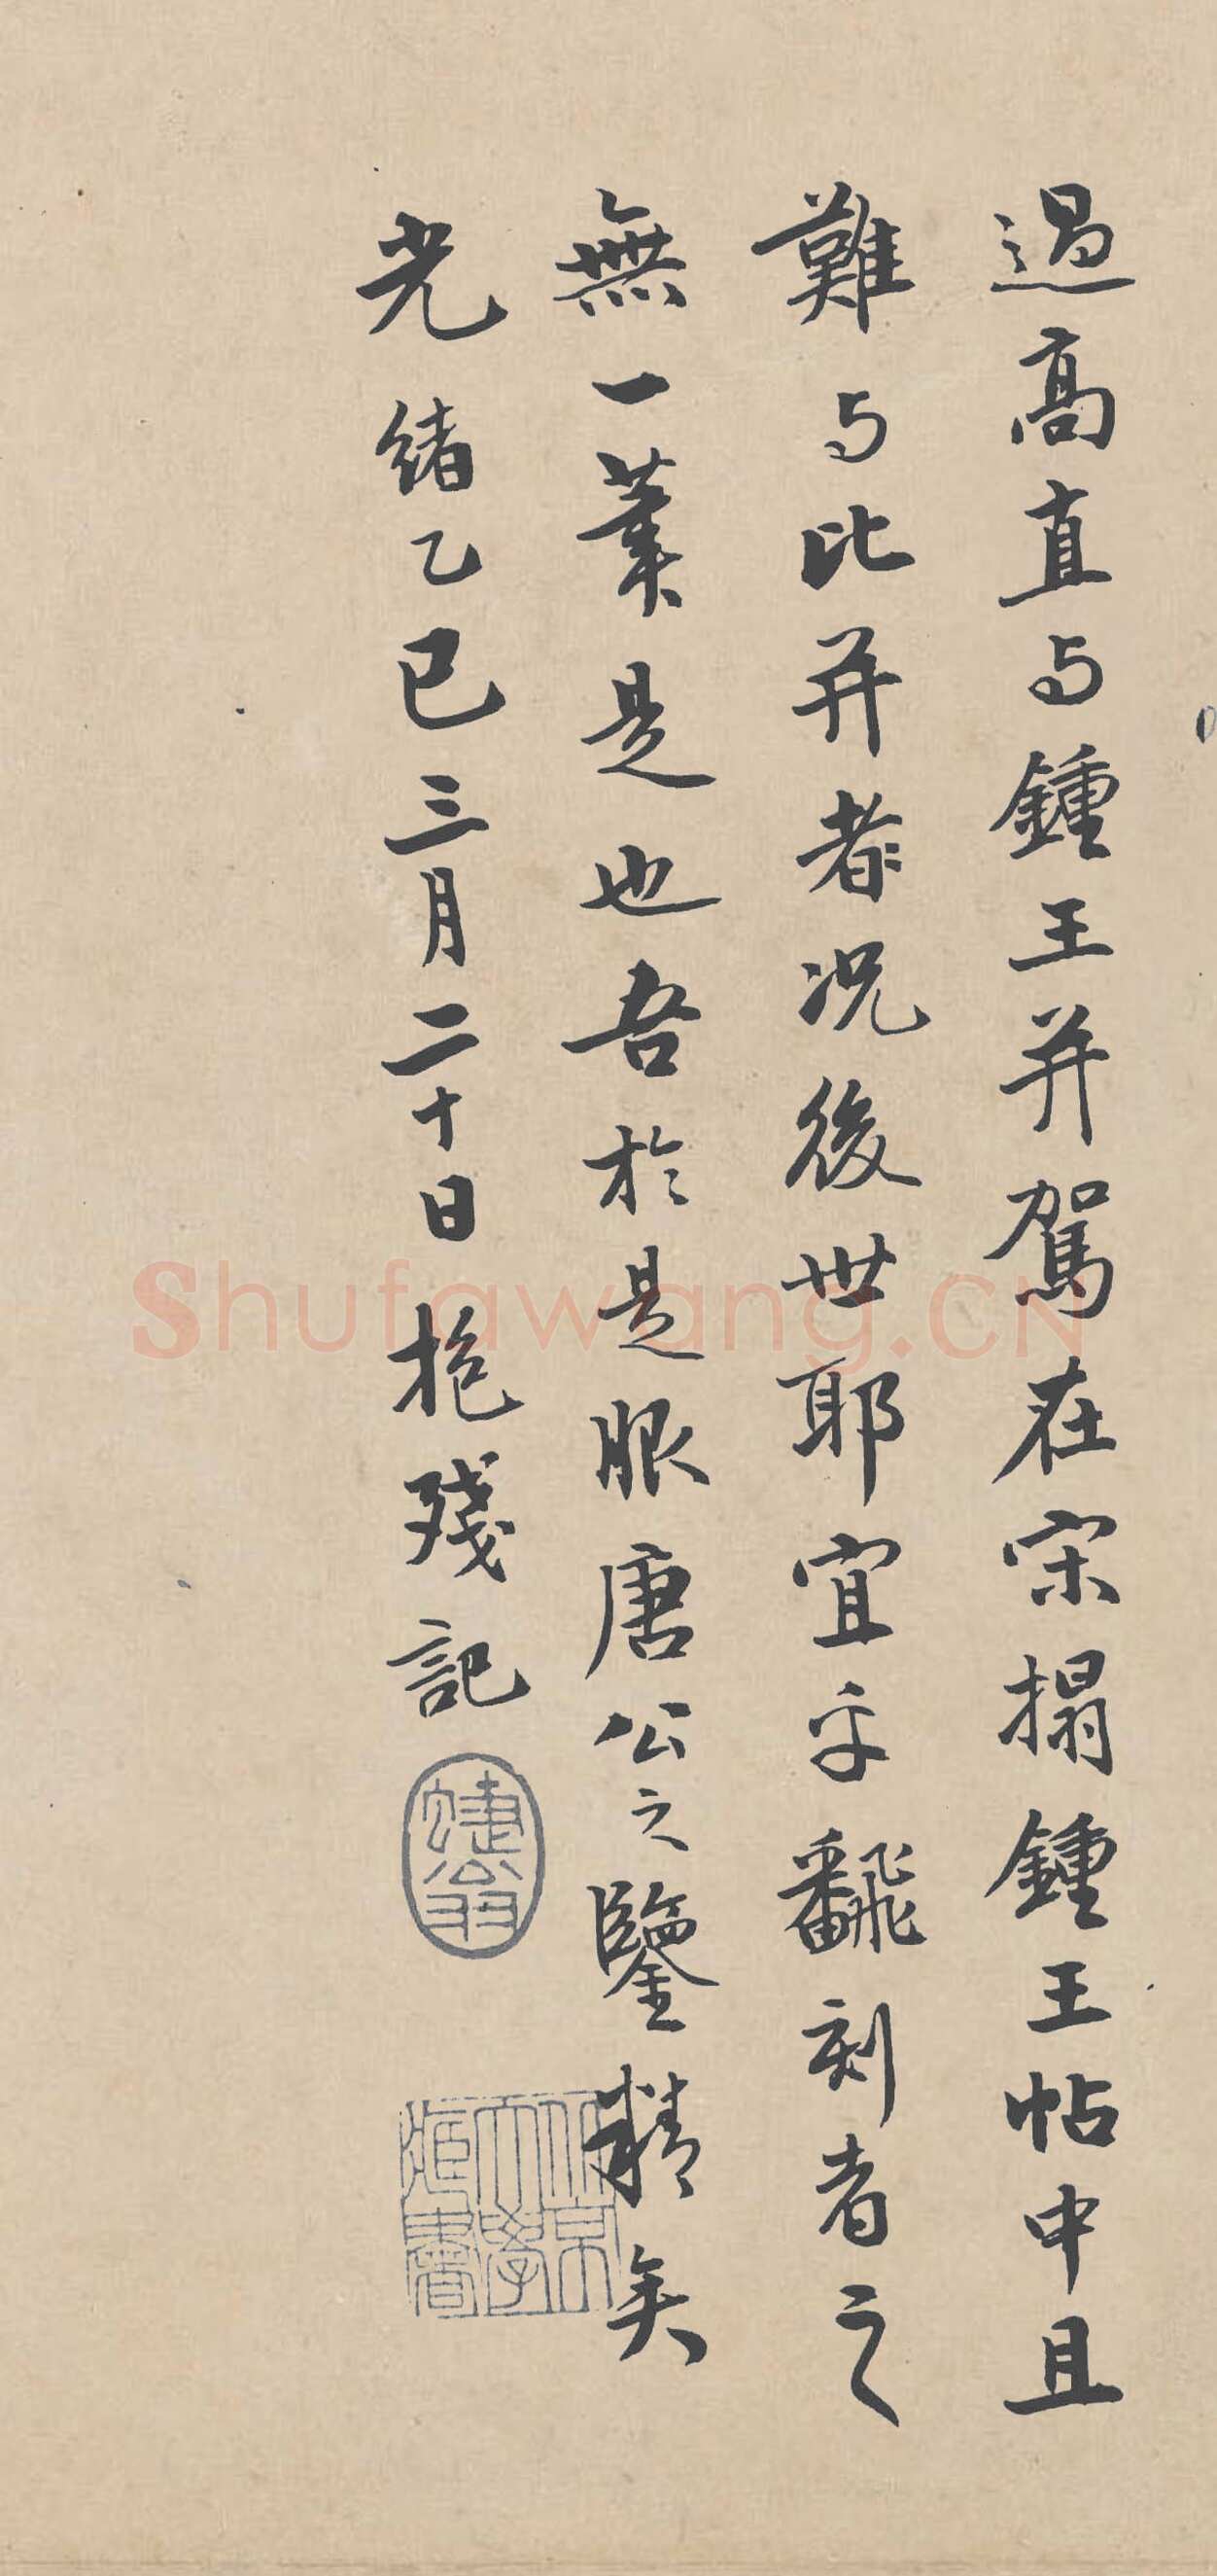 過高直与鍾王并駕在宋搨鍾王帖中且
難与比并者况後世耶宜乎飜刻者之
無一業是也吾於是服唐公之鑒精矣
光緒乙巳三月二十日抱殘記
北京大學藏書
Shufawang.CN